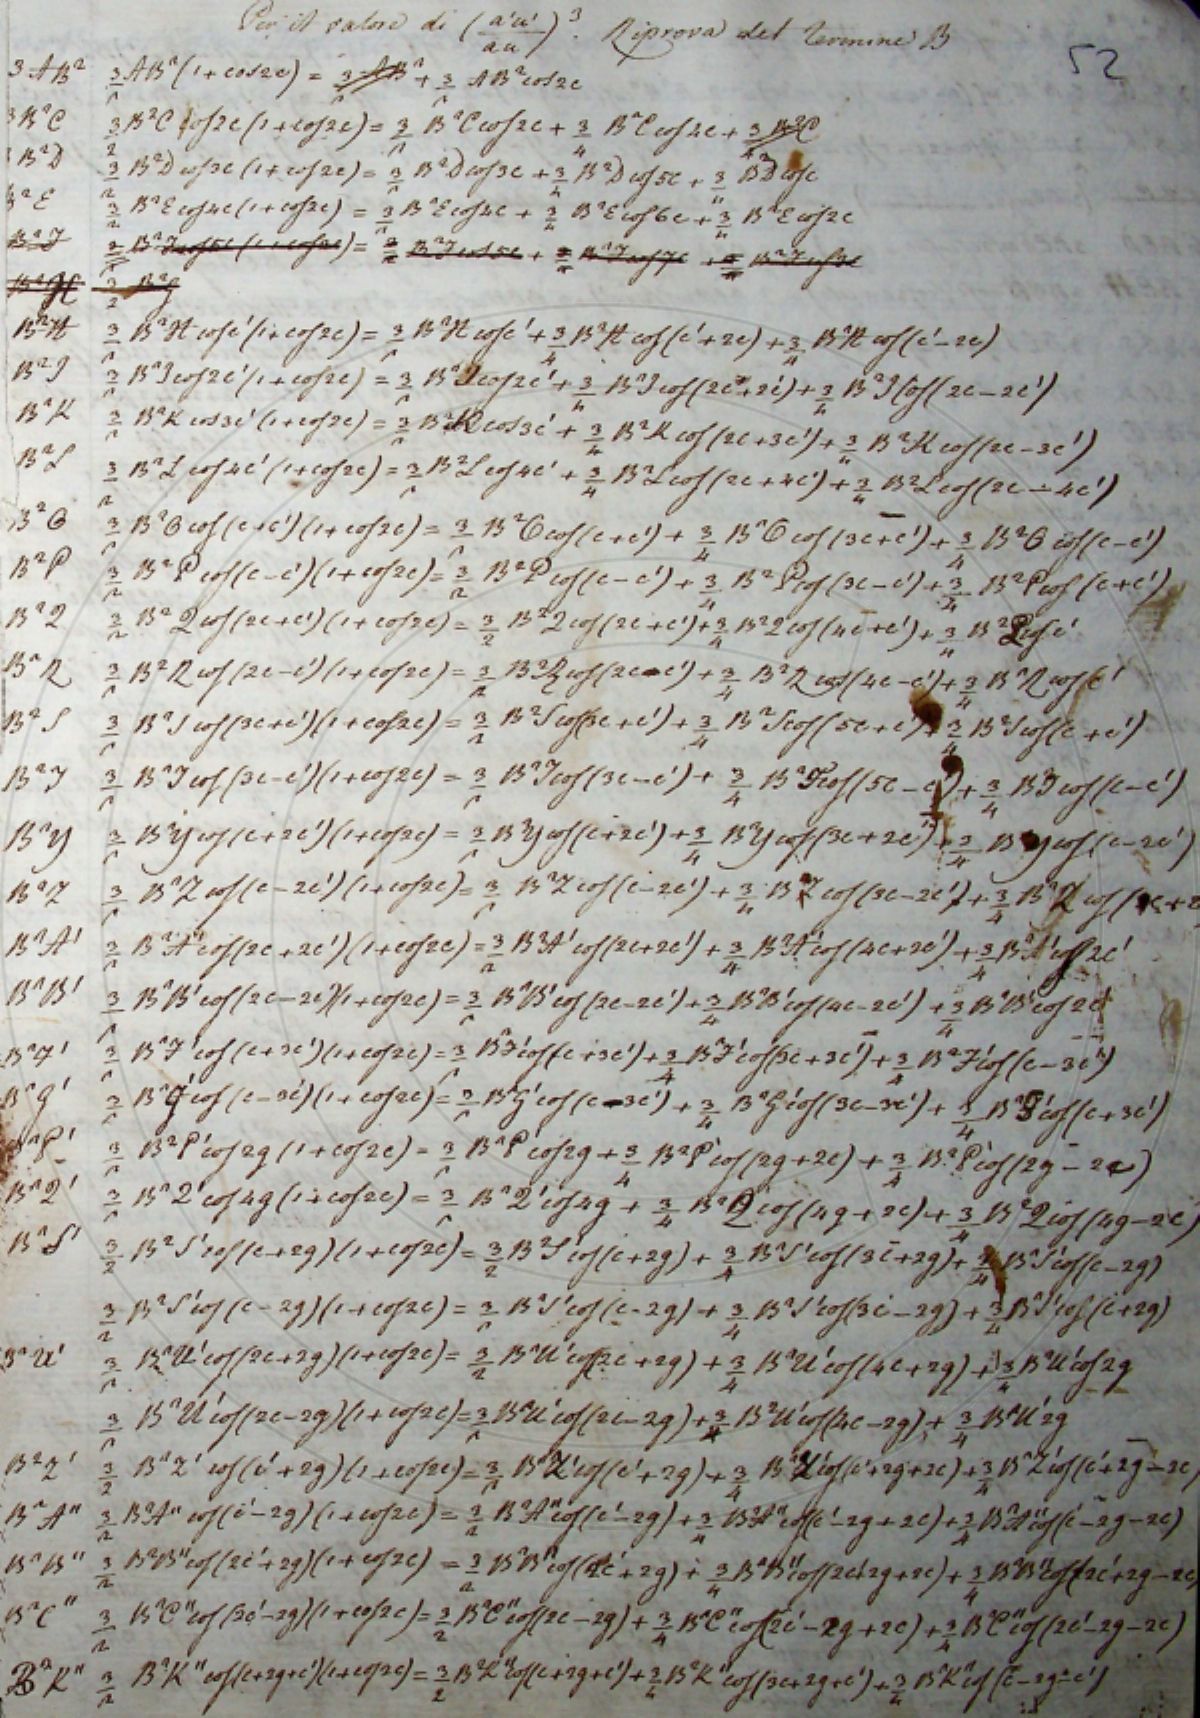 Per il valore di (a'u'/au)^3. Riprova del termine B
52
3AB² 3/2 AB²(1+cos2c) = 3/2 AB² + 3/2 AB²cos2c
3B²C 3/2 B²C cos2c(1+cos2c) = 3/2 B²Ccos2c + 3/4 B²Ccos4c + 3/4 B²C
3B²D 3/2 B²Dcos3c(1+cos2c) = 3/2 B²Dcos3c + 3/4 B²Dcos5c + 3/4 B²Dcosc
B²E 3/2 B²Ecos4c(1+cos2c) = 3/2 B²Ecos4c + 3/4 B²Ecos6c + 3/4 B²Ecos2c
B²H 3/2 B²Hcosc'(1+cos2c) = 3/2 B²Hcosc' + 3/4 B²Hcos(c'+2c) + 3/4 B²Hcos(c'-2c)
B²I 3/2 B²Icos2c'(1+cos2c) = 3/2 B²Icos2c' + 3/4 B²Icos(2c+2c') + 3/4 B²Icos(2c-2c')
B²K 3/2 B²Kcos3c'(1+cos2c) = 3/2 B²Kcos3c' + 3/4 B²Kcos(2c+3c') + 3/4 B²Kcos(2c-3c')
B²L 3/2 B²Lcos4c'(1+cos2c) = 3/2 B²Lcos4c' + 3/4 B²Lcos(2c+4c') + 3/4 B²Lcos(2c-4c')
B²O 3/2 B²Ocos(c+c')(1+cos2c) = 3/2 B²Ocos(c+c') + 3/4 B²Ocos(3c+c') + 3/4 B²Ocos(c-c')
B²P 3/2 B²Pcos(c-c')(1+cos2c) = 3/2 B²Pcos(c-c') + 3/4 B²Pcos(3c-c') + 3/4 B²Pcos(c+c')
B²Q 3/2 B²Qcos(2c+c')(1+cos2c) = 3/2 B²Qcos(2c+c') + 3/4 B²Qcos(4c+c') + 3/4 B²Qcosc'
B²R 3/2 B²Rcos(2c-c')(1+cos2c) = 3/2 B²Rcos(2c-c') + 3/4 B²Rcos(4c-c') + 3/4 B²Rcosc'
B²S 3/2 B²Scos(3c+c')(1+cos2c) = 3/2 B²Scos(3c+c') + 3/4 B²Scos(5c+c') + 3/4 B²Scos(c+c')
B²T 3/2 B²Tcos(3c-c')(1+cos2c) = 3/2 B²Tcos(3c-c') + 3/4 B²Tcos(5c-c') + 3/4 B²Tcos(c-c')
B²Y 3/2 B²Ycos(c+2c')(1+cos2c) = 3/2 B²Ycos(c+2c') + 3/4 B²Ycos(3c+2c') + 3/4 B²Ycos(c-2c')
B²Z 3/2 B²Zcos(c-2c')(1+cos2c) = 3/2 B²Zcos(c-2c') + 3/4 B²Zcos(3c-2c') + 3/4 B²Zcos(c+2
B²A' 3/2 B²A'cos(2c+2c')(1+cos2c) = 3/2 B²A'cos(2c+2c') + 3/4 B²A'cos(4c+2c') + 3/4 B²A'cos2c'
B²B' 3/2 B²B'cos(2c-2c')(1+cos2c) = 3/2 B²B'cos(2c-2c') + 3/4 B²B'cos(4c-2c') + 3/4 B²B'cos2c'
B²F' 3/2 B²F'cos(c+3c')(1+cos2c) = 3/2 B²F'cos(c+3c') + 3/4 B²F'cos(3c+3c') + 3/4 B²F'cos(c-3c')
B²G' 3/2 B²G'cos(c-3c')(1+cos2c) = 3/2 B²G'cos(c-3c') + 3/4 B²G'cos(3c-3c') + 3/4 B²G'cos(c+3c')
B²P' 3/2 B²P'cos2g(1+cos2c) = 3/2 B²P'cos2g + 3/4 B²P'cos(2g+2c) + 3/4 B²P'cos(2g-2c)
B²Q' 3/2 B²Q'cos4g(1+cos2c) = 3/2 B²Q'cos4g + 3/4 B²Q'cos(4g+2c) + 3/4 B²Q'cos(4g-2c)
B²S' 3/2 B²S'cos(c+2g)(1+cos2c) = 3/2 B²S'cos(c+2g) + 3/4 B²S'cos(3c+2g) + 3/4 B²S'cos(c-2g)
3/2 B²S'cos(c-2g)(1+cos2c) = 3/2 B²S'cos(c-2g) + 3/4 B²S'cos(3c-2g) + 3/4 B²S'cos(c+2g)
B²U' 3/2 B²U'cos(2c+2g)(1+cos2c) = 3/2 B²U'cos(2c+2g) + 3/4 B²U'cos(4c+2g) + 3/4 B²U'cos2g
3/2 B²U'cos(2c-2g)(1+cos2c) = 3/2 B²U'cos(2c-2g) + 3/4 B²U'cos(4c-2g) + 3/4 B²U'2g
B²Z' 3/2 B²Z'cos(c'+2g)(1+cos2c) = 3/2 B²Z'cos(c'+2g) + 3/4 B²Z'cos(c'+2g+2c) + 3/4 B²Z'cos(c'+2g-2c)
B²A" 3/2 B²A"cos(c'-2g)(1+cos2c) = 3/2 B²A"cos(c'-2g) + 3/4 B²A"cos(c'-2g+2c) + 3/4 B²A"cos(c'-2g-2c)
B²B" 3/2 B²B"cos(2c'+2g)(1+cos2c) = 3/2 B²B"cos(2c'+2g) + 3/4 B²B"cos(2c'+2g+2c) + 3/4 B²B"cos(2c'+2g-2c
B²C" 3/2 B²C"cos(2c'-2g)(1+cos2c) = 3/2 B²C"cos(2c-2g) + 3/4 B²C"cos(2c'-2g+2c) + 3/4 B²C"cos(2c'-2g-2c)
B²K" 3/2 B²K"cos(c+2g+c')(1+cos2c) = 3/2 B²K"cos(c+2g+c') + 3/4 B²K"cos(3c+2g+c') + 3/4 B²K"cos(c-2g-c')